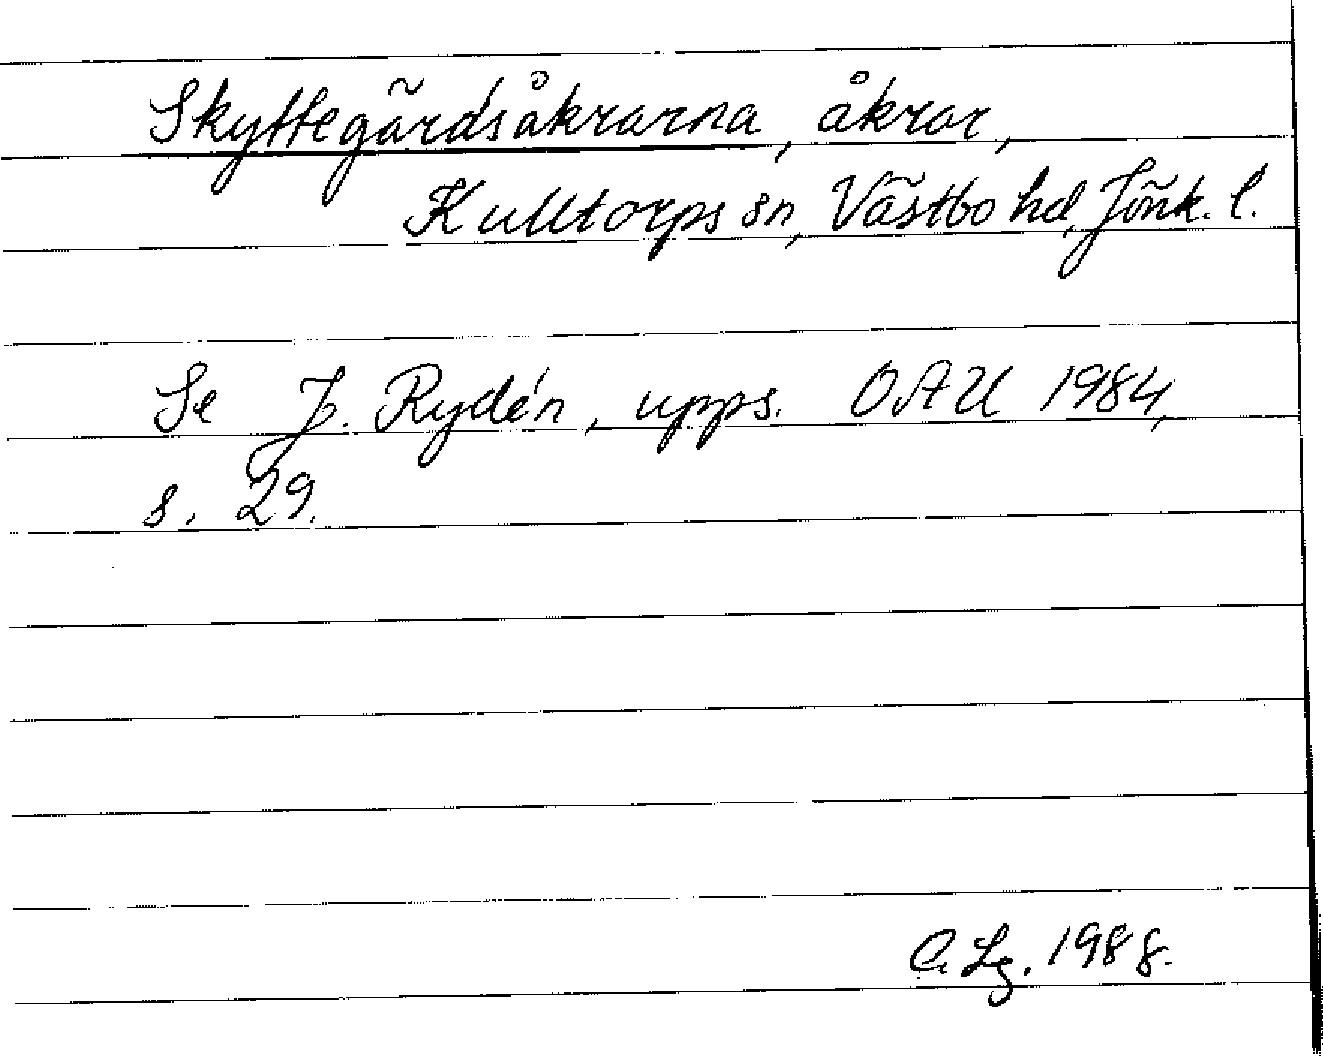 Skyttegärdsåkrarna, åkrar,
Kulltorps sn, Västbo hd, Jönk. l.
Se J. Rydén, upps. OAU 1984,
s. 29.
C. Lg. 1988.